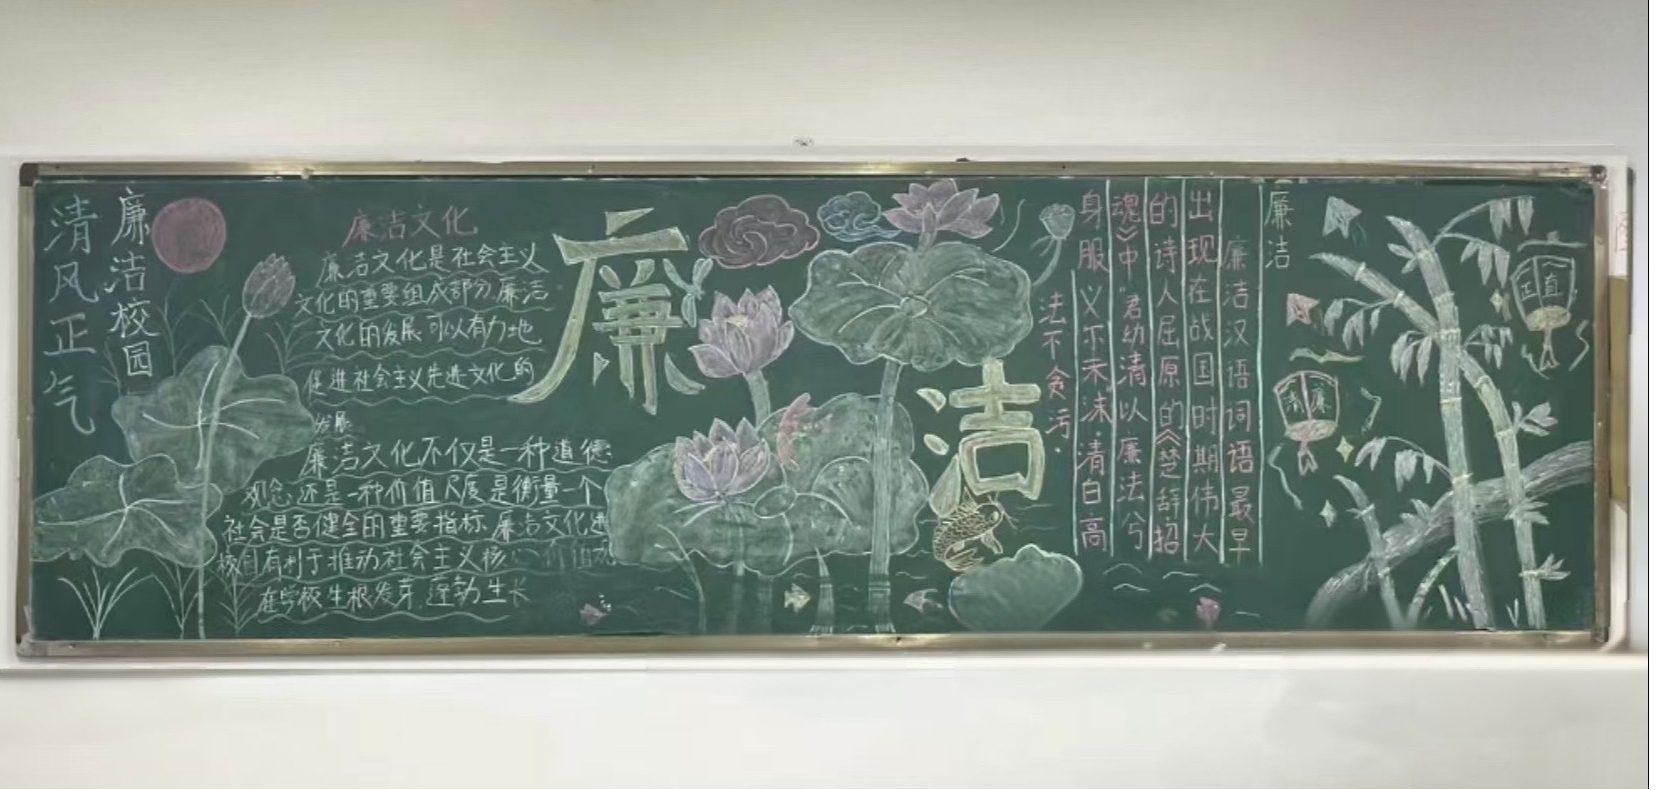 清风正气
廉洁校园
廉洁文化
廉洁文化是社会主义
文化的重要组成部分,廉洁
文化的发展可以有力地
促进社会主义先进文化的
发展
廉洁文化不仅是一种道德
观念还是一种价值尺度是衡量一个
社会是否健全的重要指标,廉洁文化进
校自有利于推动社会主义核心价值观
在学校生根发芽,蓬勃生长
廉
洁
廉洁
廉洁汉语词语最早
出现在战国时期伟大
的诗人屈原的《楚辞招
魂》中"君幼清以廉法兮
身服义尔未沫,清白高
法不贪污.
清廉
正直